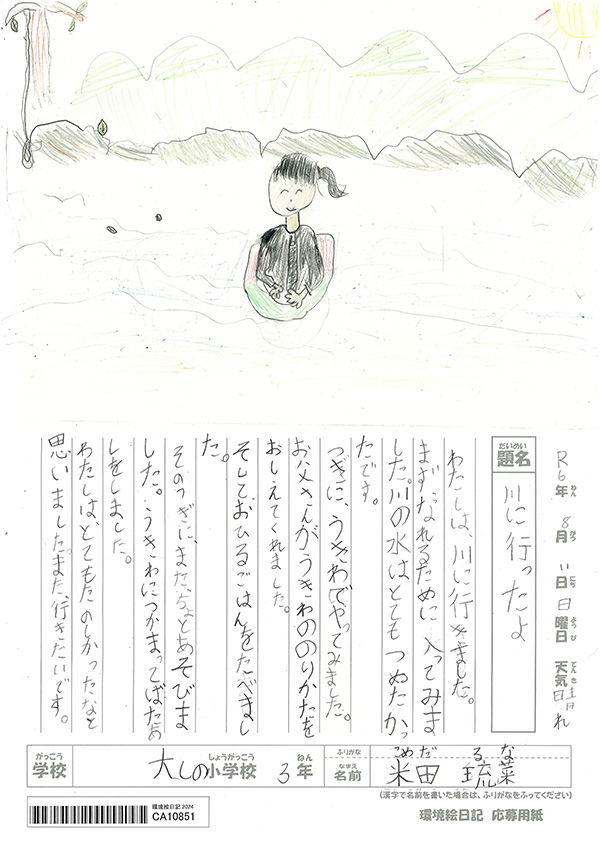 R6年 8月 11日 日曜日 天気 晴れ
ねん がつ にち ようび てんき
だいめい
題名
川に行ったよ
わたしは、川に行きました。
まず、なれるために入ってみま
した。川の水はとてもつめたかっ
たです。
つぎに、うきわでやってみました。
お父さんがうきわののりかたを
おしえてくれました。
そしておひるごはんをたべまし
た。
そのつぎに、また、ちょとあそびま
した。うきわにつかまってばたあ
しをしました。
わたしは、とてもたのしかったなと
思いました。また、行きたいです。
がっこう
学校
しょうがっこう
大しの小学校
ねん
3年
ふりがな
こめだ るな
なまえ
名前
米田 琉菜
(漢字で名前を書いた場合は、ふりがなをふってください)
環境絵日記 2024
CA10851
環境絵日記 応募用紙